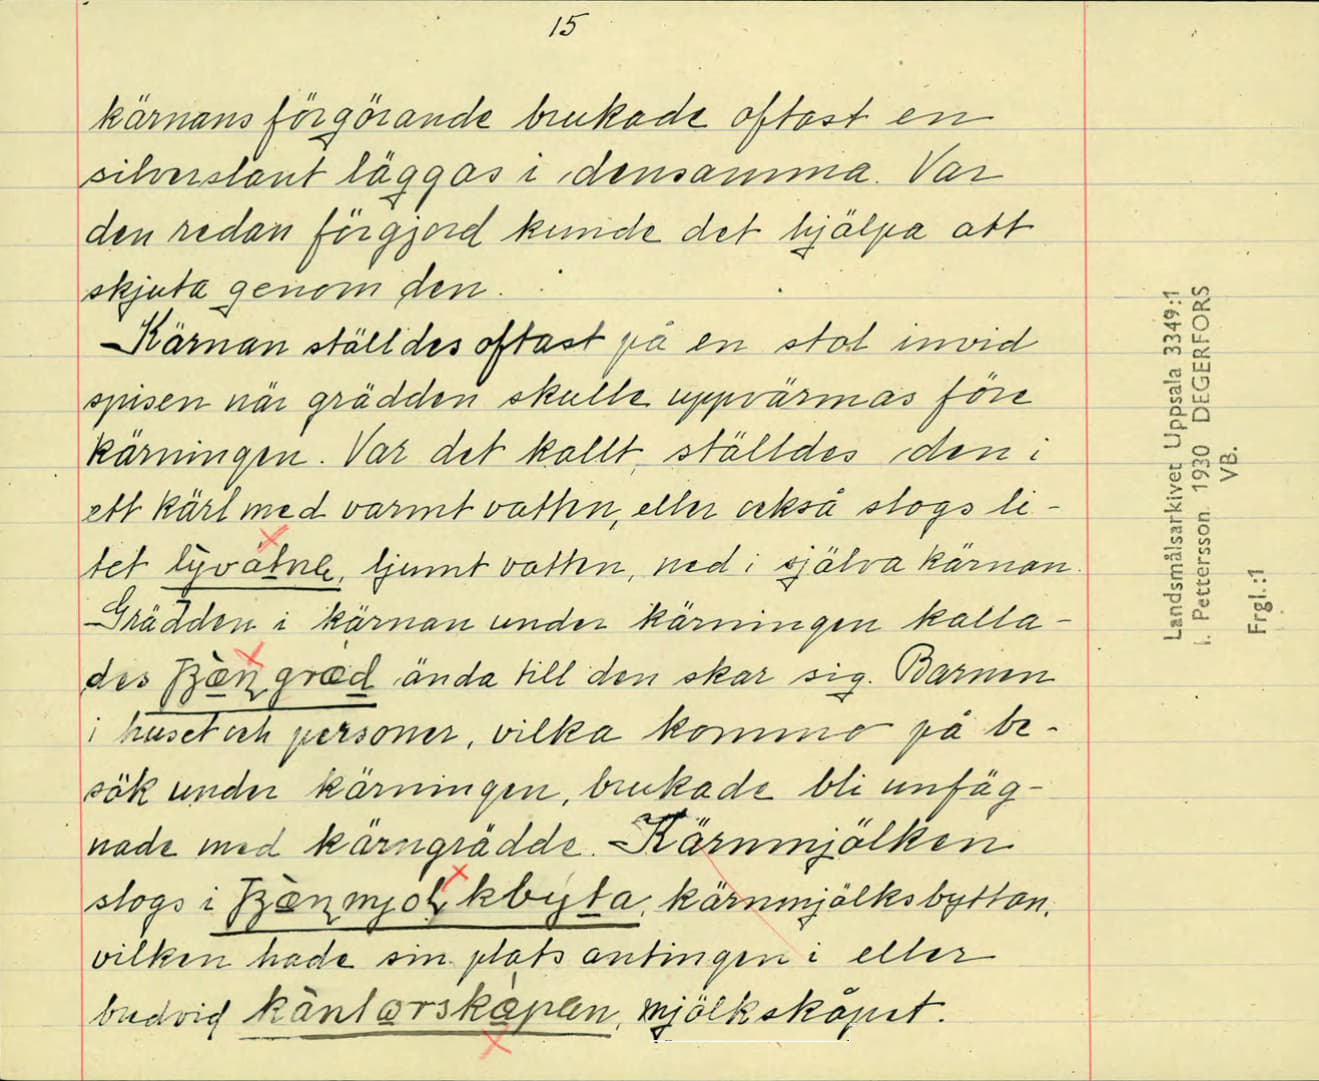 15
kärnans förgörande brukade oftast en
silverslant läggas i densamma. Var
den redan förgjord kunde det hjälpa att
skjuta genom den.
- Kärnan ställdes oftast på en stol invid
spisen när grädden skulle uppvärmas före
kärningen. Var det kallt, ställdes den i
ett kärl med varmt vatten, eller också slogs li-
tet , ljumt vatten, ned i själva kärnan.
Grädden i kärnan under kärningen kalla-
des ända till den skar sig. Barnen
i huset och personer, vilka kommo på be-
sök under kärningen, brukade bli unfäg-
nade med kärngrädde. - Kärnmjölken
slogs i , kärnmjölksbyttan,
vilken hade sin plats antingen i eller
bredvid , mjölkskåpet.
Landsmålsarkivet Uppsala 3349:1
I. Pettersson 1930 DEGERFORS
VB.
Frgl.:1